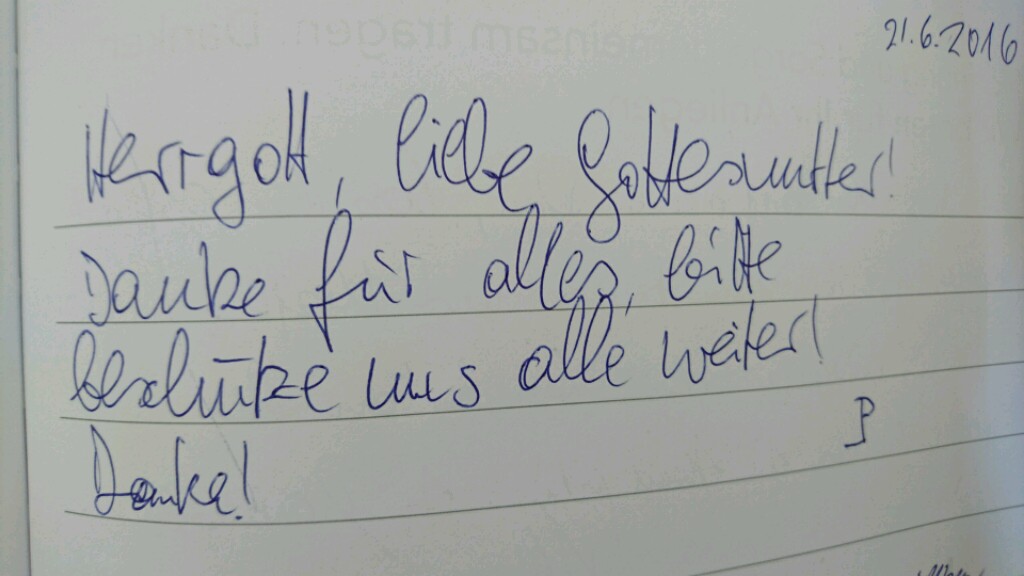 21.6.2016
Herrgott, liebe Gottesmutter!
Danke für alles, bitte
beschütze uns alle weiter!
P
Danke!